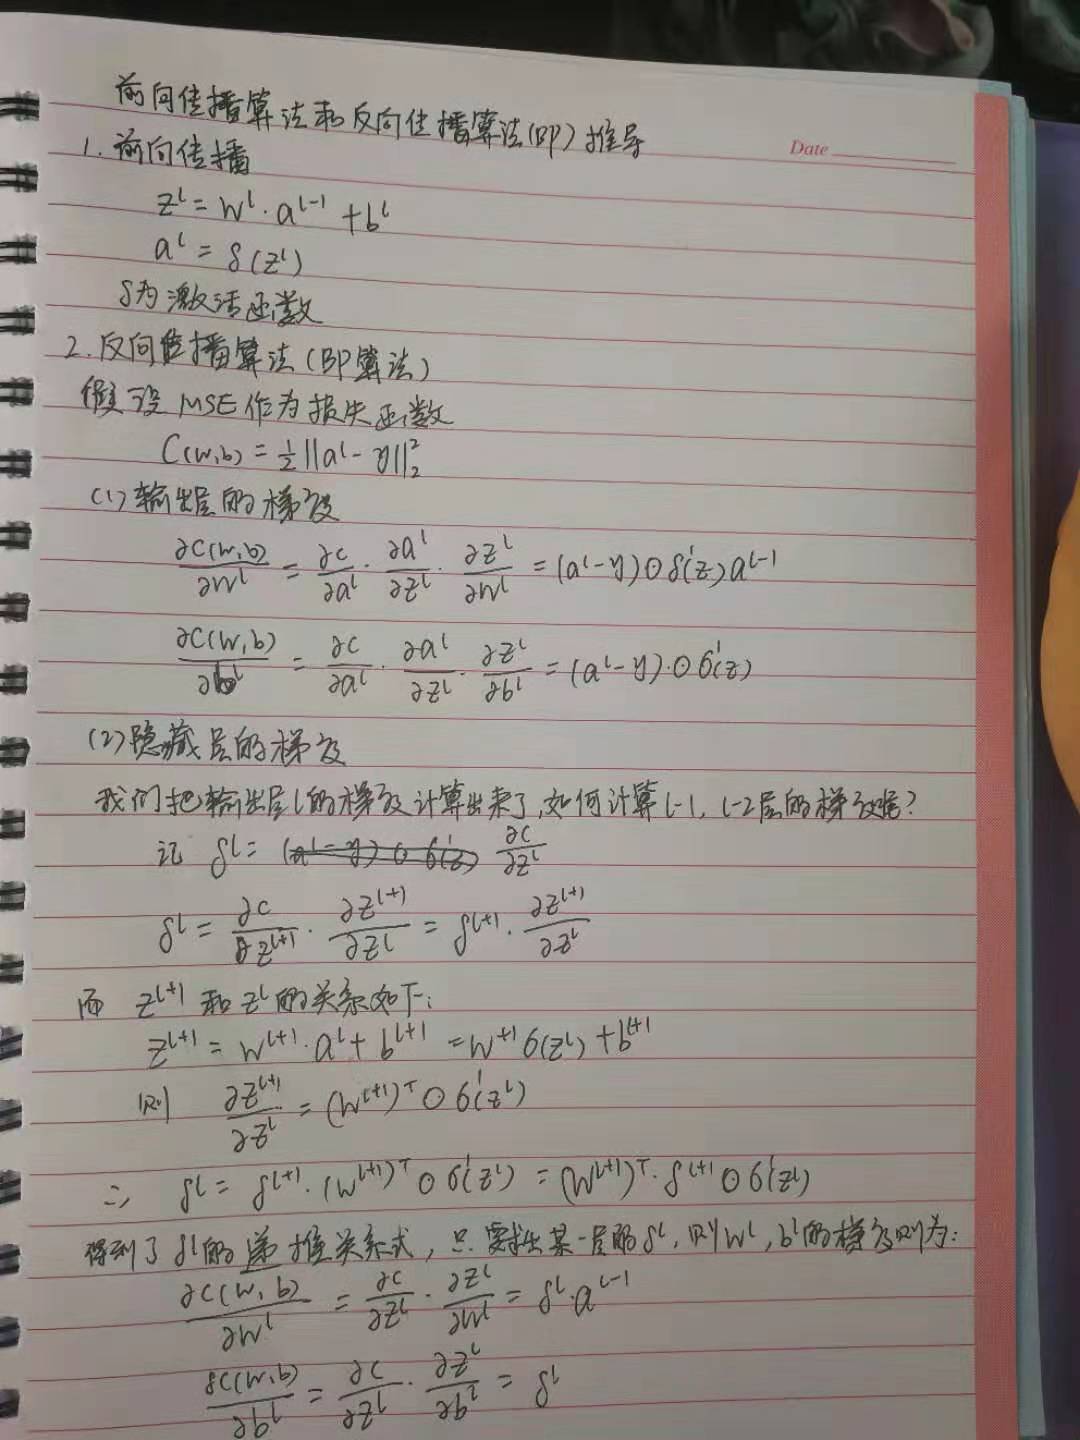 前向传播算法和反向传播算法(BP)推导
Date
1. 前向传播
z^l = w^l · a^{l-1} + b^l
a^l = δ(z^l)
δ为激活函数
2. 反向传播算法(BP算法)
假设 MSE作为损失函数
C(w,b) = ½||a^l - y||₂²
(1) 输出层的梯度
∂C(w,b)/∂w^l = ∂C/∂a^l · ∂a^l/∂z^l · ∂z^l/∂w^l = (a^l-y)⊙δ'(z)a^{l-1}
∂C(w,b)/∂b^l = ∂C/∂a^l · ∂a^l/∂z^l · ∂z^l/∂b^l = (a^l-y)·⊙σ'(z)
(2) 隐藏层的梯度
我们把输出层l的梯度计算出来了,如何计算l-1, l-2层的梯度呢?
记 δ^l = ∂C/∂z^l
δ^l = ∂C/∂z^{l+1} · ∂z^{l+1}/∂z^l = δ^{l+1} · ∂z^{l+1}/∂z^l
而 z^{l+1} 和 z^l 的关系如下:
z^{l+1} = w^{l+1}·a^l + b^{l+1} = w^{+1}σ(z^l) + b^{l+1}
则 ∂z^{l+1}/∂z^l = (w^{l+1})^T ⊙ σ'(z^l)
∴ δ^l = δ^{l+1}·(w^{l+1})^T ⊙ σ'(z^l) = (w^{l+1})^T·δ^{l+1} ⊙ σ'(z^l)
得到了 δ^l 的递推关系式, 只要求出某一层的δ^l, 则w^l, b^l的梯度则为:
∂C(w,b)/∂w^l = ∂C/∂z^l · ∂z^l/∂w^l = δ^l·a^{l-1}
∂C(w,b)/∂b^l = ∂C/∂z^l · ∂z^l/∂b^l = δ^l